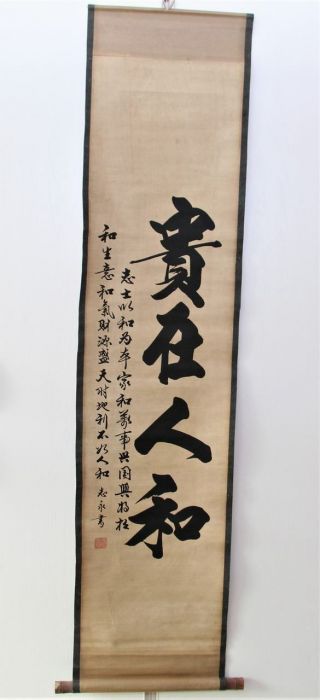 貴在人和
志士以和为本家和萬事兴国興将相
和生意和氣財源盛天时地利不如人和 志永書